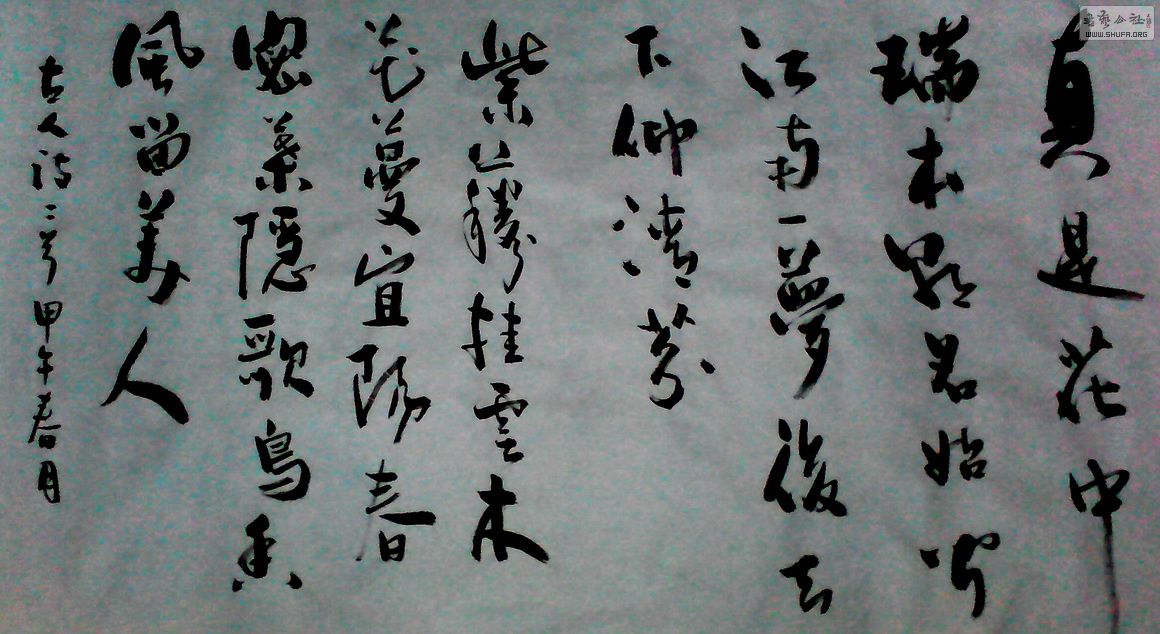 真是花中
瑞本朝名始聞
江南一夢後天
下仰清芬
紫藤挂雲木
花蔓宜陽春
密葉隱歌鳥香
風留美人
古人詩二首甲午春月
書藝公社
WWW.SHUFA.ORG